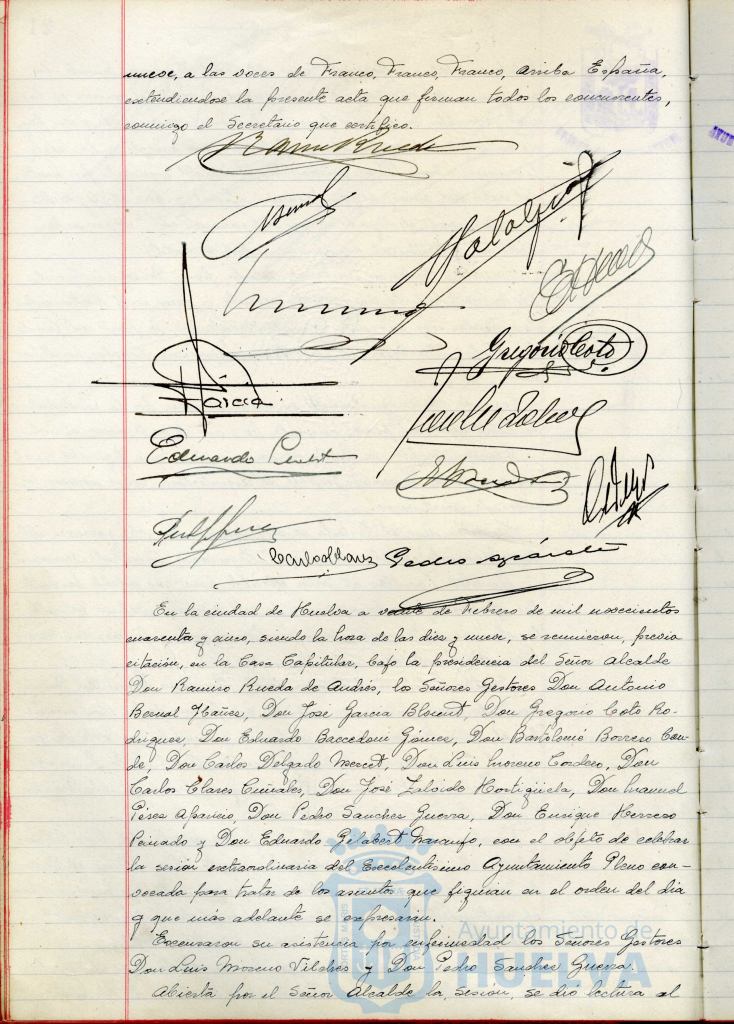 nueve, a las voces de Franco, Franco, Franco, Arriba España,
extendiendose la presente acta que firman todos los concurrentes,
conmigo el Secretario que certifico.
Ramiro Rueda
Bernal
Garcia
Gregorio Coto
Eduardo
Carlos Clares Pedro
En la ciudad de Huelva a veinte de Febrero de mil novecientos
cuarenta y cinco, siendo la hora de las diez y nueve, se reunieron, previa
citación, en la Casa Capitular, bajo la presidencia del Señor Alcalde
Don Ramiro Rueda de Andrés, los Señores Gestores Don Antonio
Bernal Ybañez, Don José Garcia Blound, Don Gregorio Coto Ro-
driguez, Don Eduardo Baccedoni Gómez, Don Bartolomé Borrero Con-
de, Don Carlos Delgado Mercet, Don Luis Moreno Cordero, Don
Carlos Clares Cumales, Don José Zaloide Hortigüela, Don Manuel
Pérez Aparicio, Don Pedro Sanchez Guerra, Don Enrique Herrero
Peinado y Don Eduardo Gelabert Naranjo, con el objeto de celebrar
la sesión extraordinaria del Excelentisimo Ayuntamiento Pleno con-
vocada para tratar de los asuntos que figuran en el orden del dia
y que mas adelante se expresaran.
Excusaron su asistencia por enfermedad los Señores Gestores
Don Luis Moreno Vilches y Don Pedro Sanchez Guerra.
Abierta por el Señor Alcalde la sesión, se dió lectura al
Ayuntamiento de
HUELVA